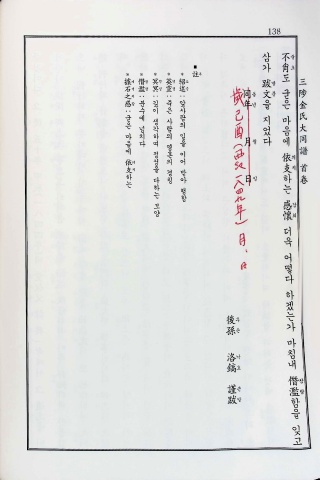 138
三陟金氏大同譜 首卷
不肖도 굳은 마음에 依支하는 感懷 더욱 어떻다 하겠는가 마침내 僭濫함을 잊고
삼가 跋文을 지었다
同年 月 日
歲己酉(西紀一八四九年) 月、日
後孫 洛鎬 謹跋
■ 註
* 紹述 : 앞사람의 일을 이어 받아 행함
* 英靈 : 죽은 사람의 영혼의 경칭
* 冥冥 : 깊이 생각하여 정성을 다하는 모양
* 僭濫 : 분수에 넘치다
* 據石之感 : 굳은 마음에 依支하는